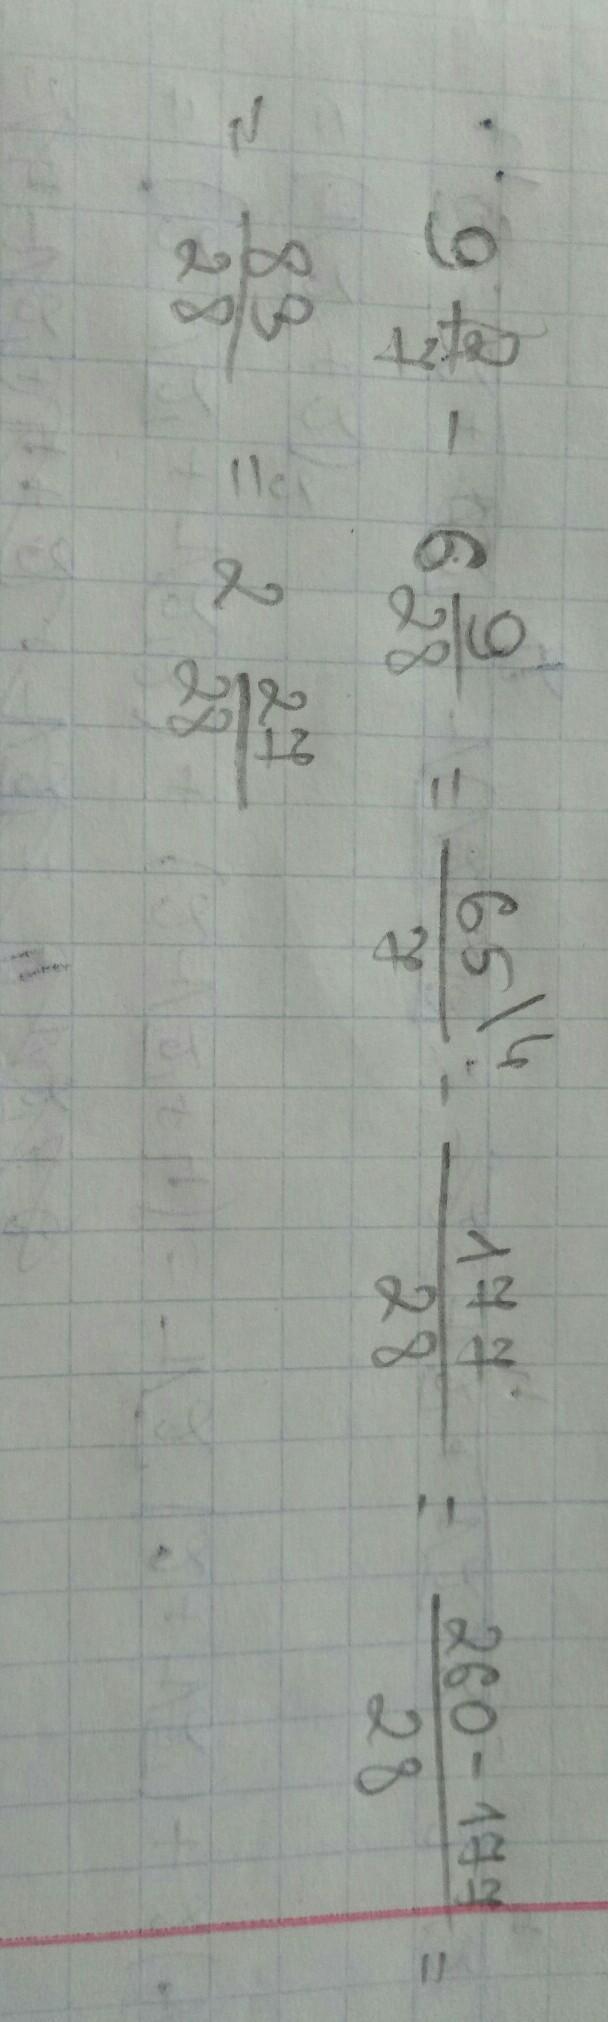 9 2/7 - 6 9/28 = 65\4/7 - 177/28 = 260-177/28 =
= 83/28 = 2 27/28